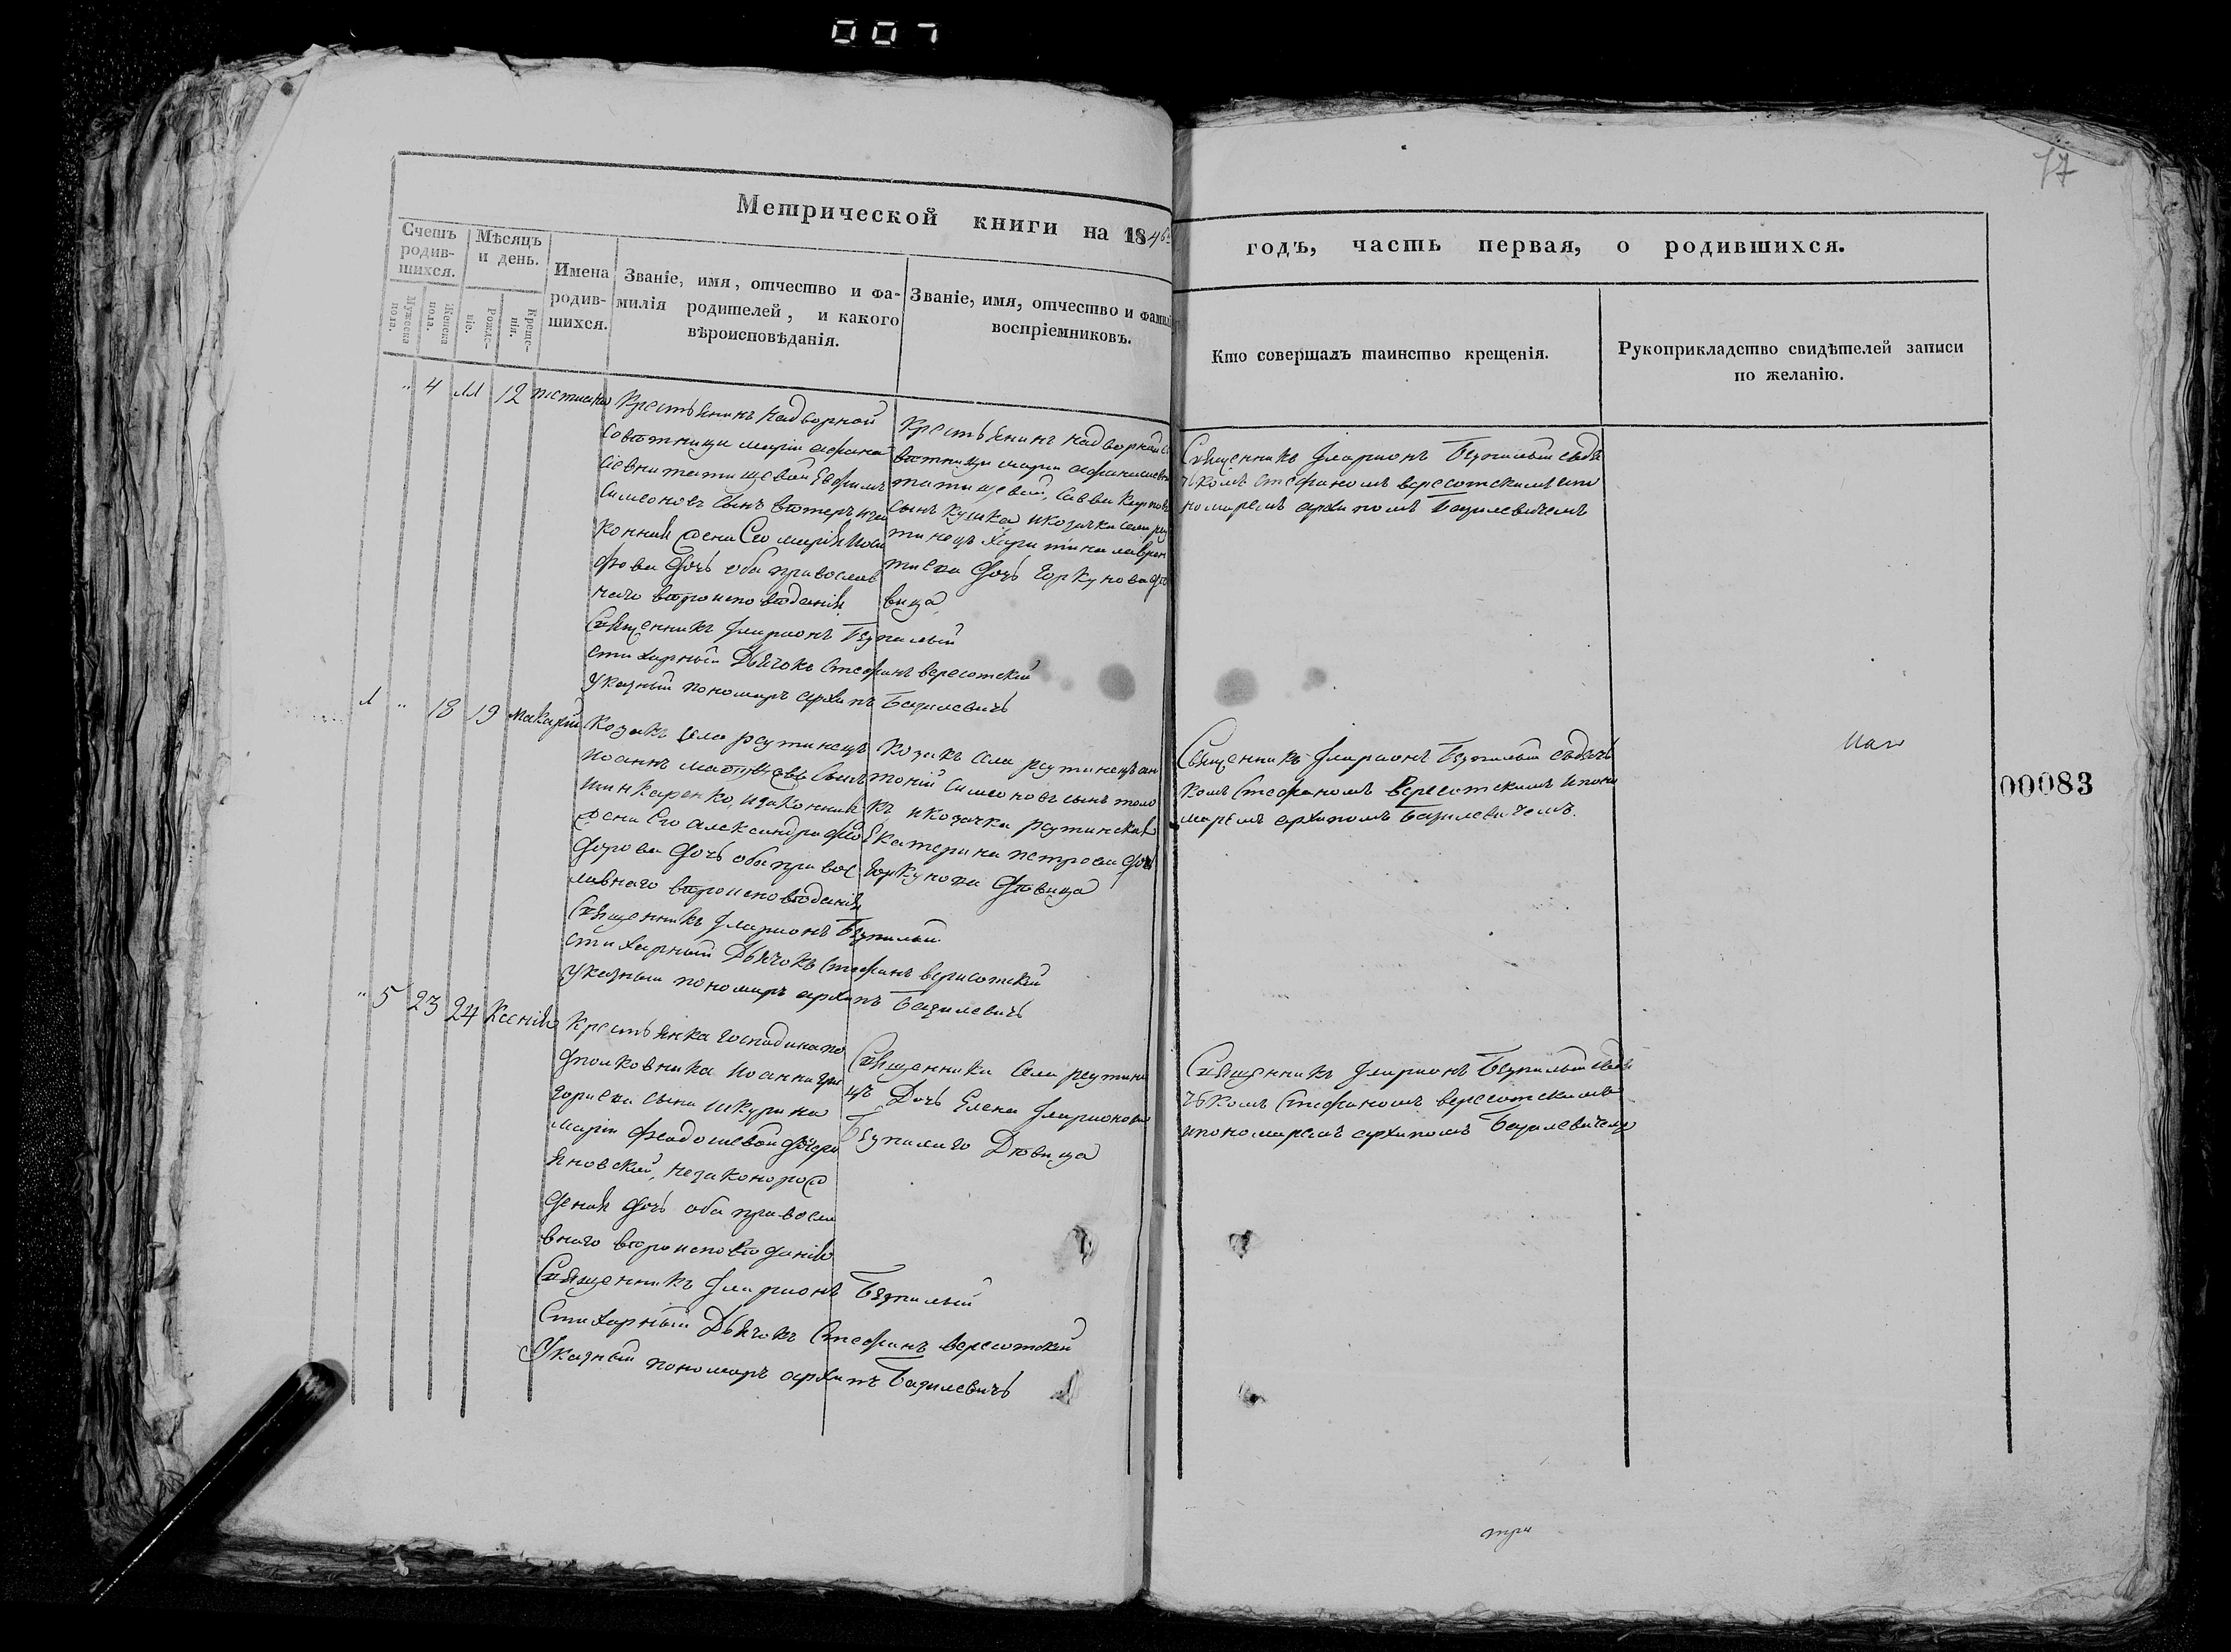 007
77
Метрической книги на 184
годъ, часть первая, о родившихся.
Счетъ родив-шихся.
Мужеска пола.
Женска пола.
Мѣсяцъ и день.
Рожде-ніе.
Креще-нія.
Имена родив-шихся.
Званіе, имя, отчество и фа-
милія родителей, и какого
вѣроисповѣданія.
Званіе, имя, отчество и фамилі
воспріемниковъ.
Кто совершалъ таинство крещенія.
Рукоприкладство свидѣтелей записи
по желанію.
" 4 11 12
Крестьянинъ надворной
совѣтницы маріи афана
сіевни татищевой Ефимъ
Симеоновъ сынъ
жена Его марія Иоси
фова дочь оба православ
наго вѣроисповѣданія
Священникъ Иларионъ Безпалый
стихарный Дьячокъ Стефанъ вересотскій
Указный пономарь архипъ Базилевичъ
Крестьянинъ надворной со
вѣтницы марии афанасиевни
татищевой, Савва Карповъ
сынъ кушка икозачка села реу
тинецъ Харитина лаврен
тиева дочь Горкунова дѣ
вица
Священникъ Иларионъ Безпалый съдья
чкомъ Стефаномъ вересотскимъ ипо
номаремъ архипомъ Базилевичемъ
1 " 18 19 Макарій
Козакъ села реутинецъ
иоаннъ матвѣевъ сынъ
шинкаренко, изаконная
жена Его александра фео
дорова дочь оба правос
лавнаго вѣроисповѣданія
Священникъ Иларионъ Безпалый
стихарный Дьячокъ Стефанъ вересотскій
Указный пономарь архипъ Базилевичъ
Козакъ села реутинецъ ан
тоній Симеоновъ сынъ толо
къ икозачка реутинская
Екатерина петрова дочь
Горкунова дѣвица
Священникъ Иларионъ Безпалый съдьяч
комъ Стефаномъ Вересотскимъ ипоно
маремъ архипомъ Базилевичемъ.
00083
" 5 23 24 Ксенія
Крестьянка господина по
дполковника Иоанна гри
гориева сына шкурина
марія феодосиевой дочери
яновской, незаконорож
деная дочь оба правосла
внаго вѣроисповѣданія
Священникъ Иларионъ Безпалый
Стихарный Дьячокъ Стефанъ вересотскій
Указный пономарь архипъ Базилевичъ
Священника села реутине
цъ Дочь Елена Иларионова
Безпалаго Дѣвица
Священникъ Иларионъ Безпалый съдья
чкомъ Стефаномъ вересотскимъ
ипономаремъ архипомъ Базилевичемъ
три